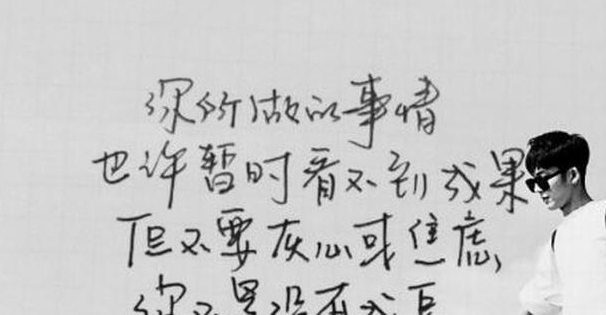 你所做的事情
也许暂时看不到成果
但不要灰心或焦虑,
你不是没有成长